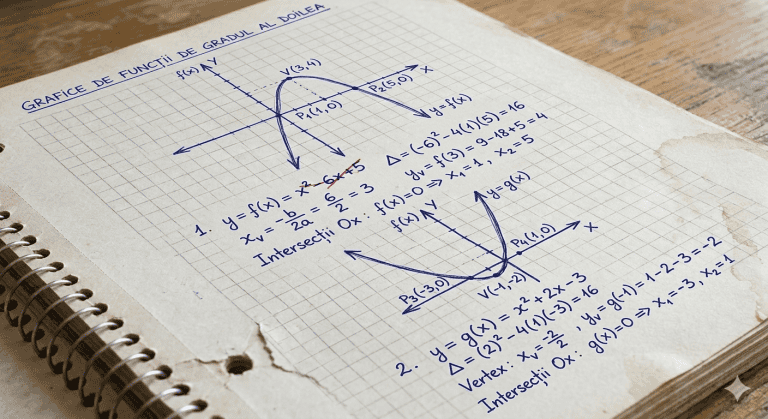 GRAFICE DE FUNCȚII DE GRADUL AL DOILEA
f(x) Y
V(3,4)
P₁(1,0)
P₂(5,0)
X
y=f(x)
1. y = f(x) = x² - 6x + 5
x_v = -b/2a = 6/2 = 3
Intersecții Ox: f(x)=0 ⇒ x₁=1, x₂=5
Δ = (-6)² - 4(1)(5) = 16
y_v = f(3) = 9-18+5 = 4
f(x) Y
y=g(x)
P₄(1,0)
X
P₃(-3,0)
V(-1,-2)
2. y = g(x) = x² + 2x - 3
Δ = (2)² - 4(1)(-3) = 16
Vertex: x_v = -2/2, y_v = g(-1) = 1-2-3 = -2
Intersecții Ox: g(x)=0 ⇒ x₁=-3, x₂=1